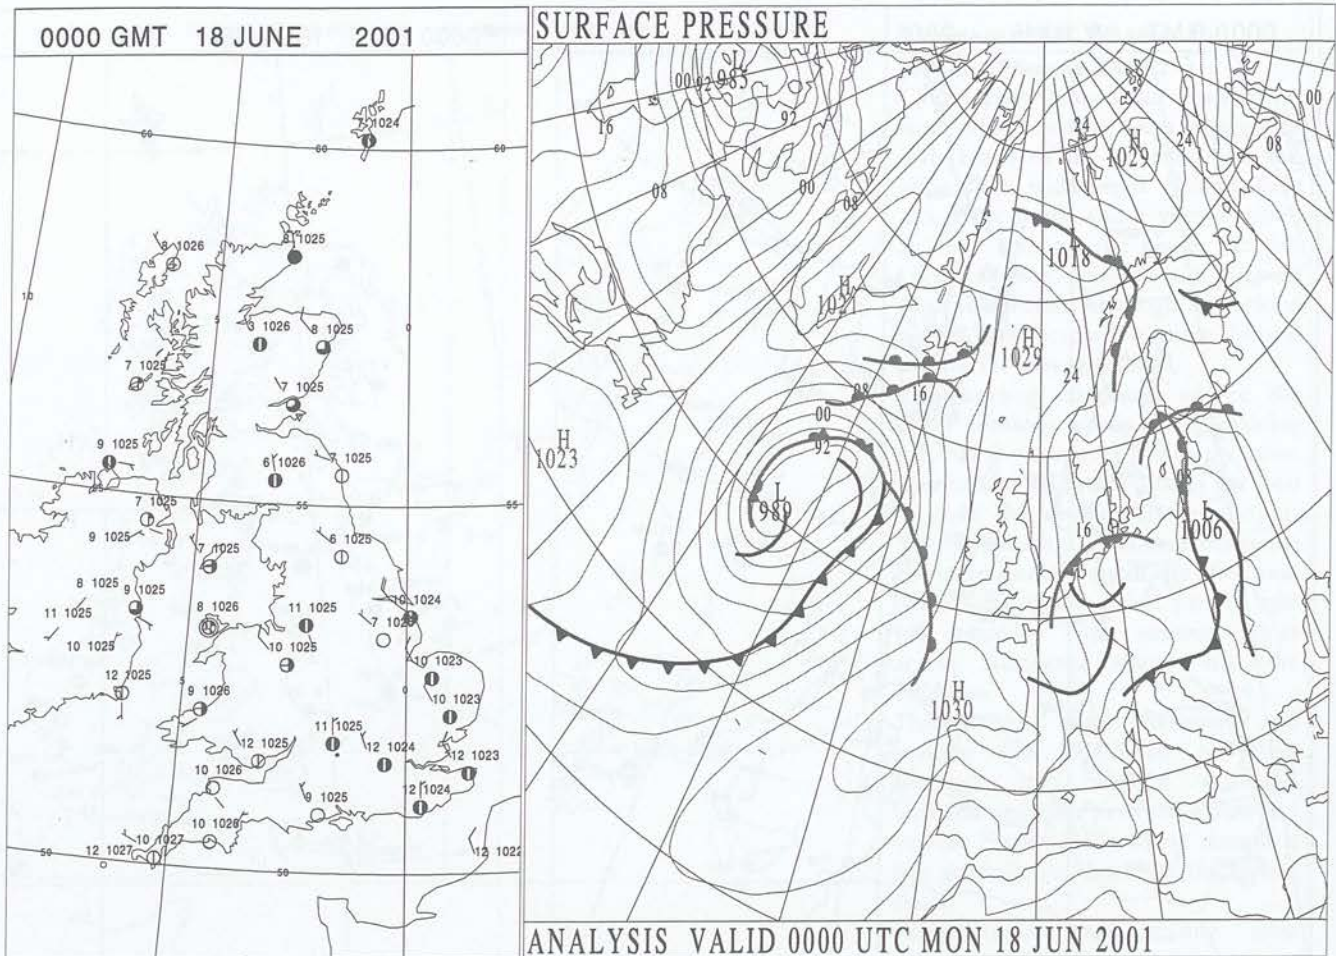 0000 GMT 18 JUNE 2001
7 1024
60
60
60
8 1025
8 1026
10
5
0
1026
8 1025
7 1025
7 1025
9 1025
6 1026
7 1025
55
55
7 1025
9 1025
7 1025
6 1025
8 1025
9 1025
11 1025
10 1025
8 1026
11 1025
10 1024
10 1025
10 1023
12 1025
5
9 1026
0
10 1023
11 1025
12 1025
12 1024
12 1023
10 1026
9 1025
12 1024
10 1026
10 1027
12 1027
12 1022
50
50
SURFACE PRESSURE
L
985
00
92
92
16
08
00
08
24
H
1029
24
00
08
L
1018
H
1021
H
1029
24
16
08
00
92
H
1023
L
989
16
08
L
1006
H
1030
ANALYSIS VALID 0000 UTC MON 18 JUN 2001